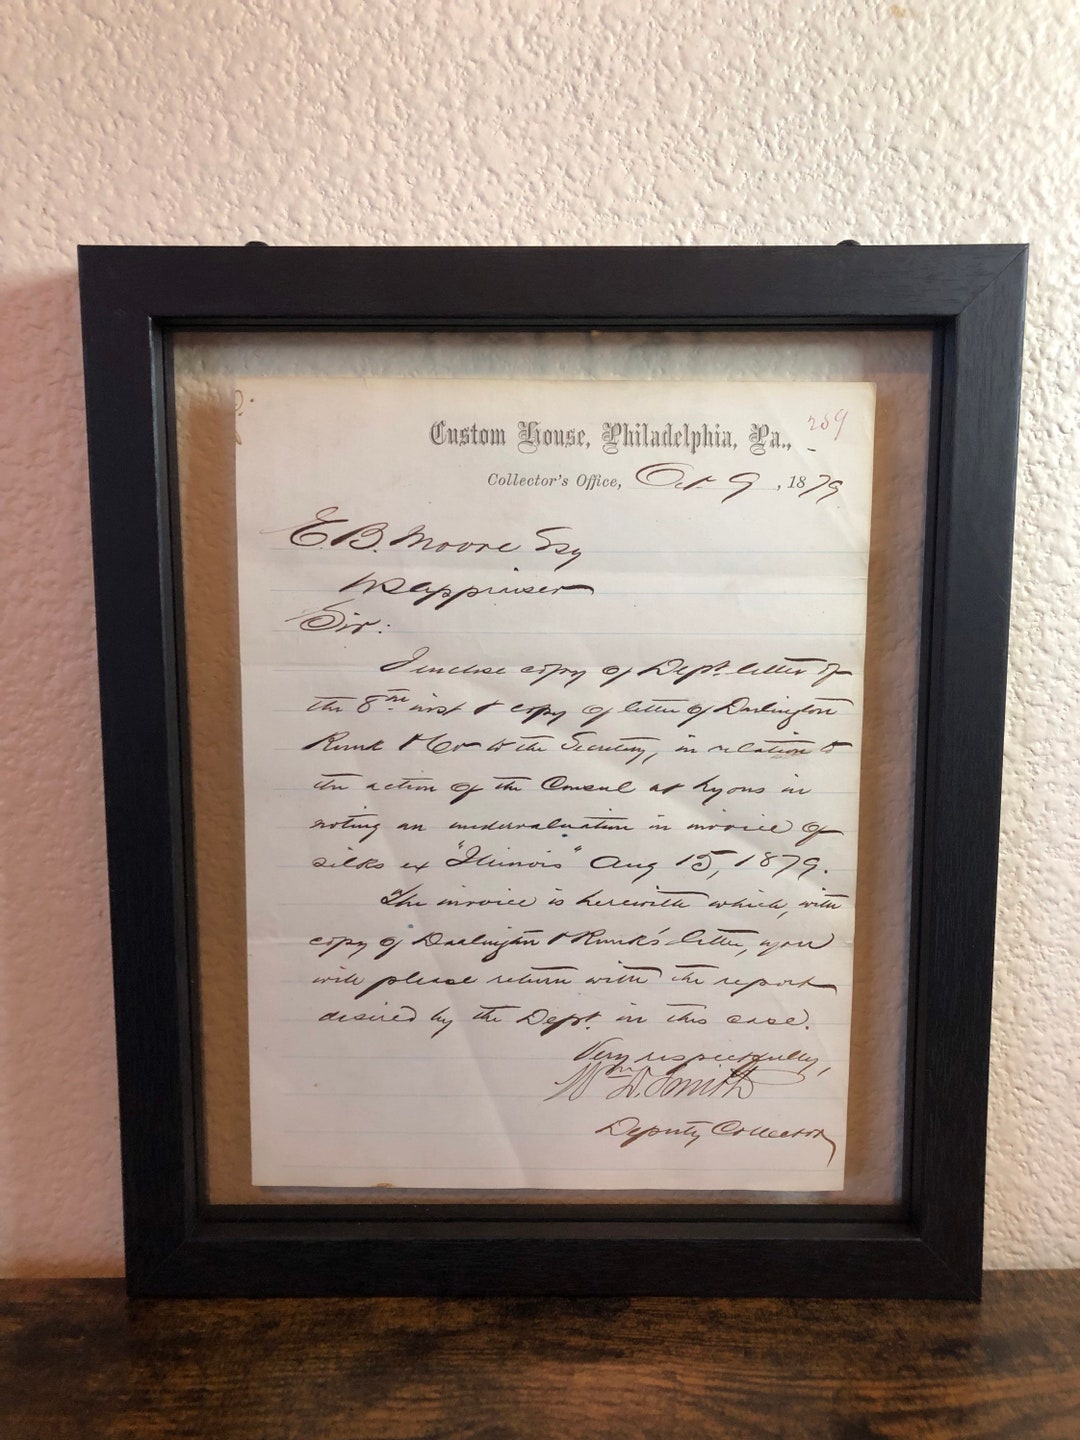 259
Custom House, Philadelphia, Pa.,
Collector's Office, Oct 9, 1879
E. B. Moore Esq
US Appraiser
Sir:
I enclose copy of Dept. letter of
the 8th inst & copy of letter of Darlington
Runk & Co to the Secretary, in relation to
the action of the Consul at Lyons in
noting an undervaluation in invoice of
silks ex "Illinois" Aug 15, 1879.
The invoice is herewith which, with
copy of Darlington & Runk's letter, you
will please return with the report
desired by the Dept. in this case.
Very respectfully,
Wm D. Smith
Deputy Collector